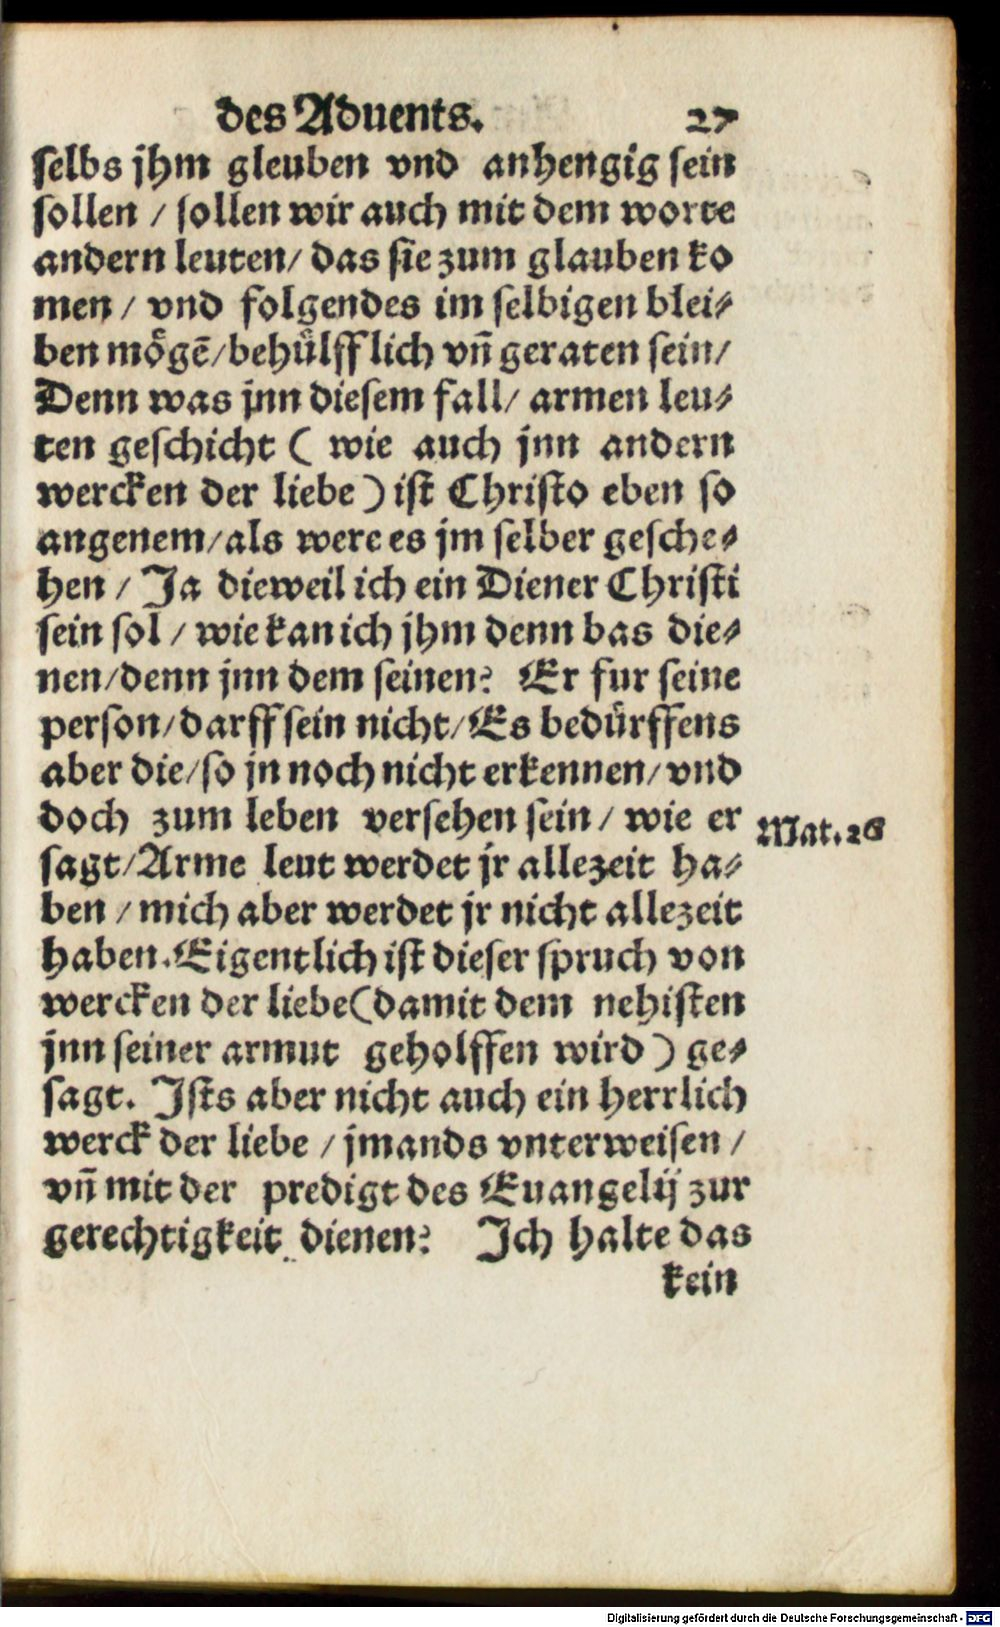 des Aduents. 27
selbs jhm gleuben vnd anhengig sein
sollen / sollen wir auch mit dem worte
andern leuten/ das sie zum glauben ko
men / vnd folgendes im selbigen blei⸗
ben mögē/behülfflich vn̄ geraten sein/
Denn was jnn diesem fall/ armen leu⸗
ten geschicht ( wie auch jnn andern
wercken der liebe ) ist Christo eben so
angenem/als were es jm selber gesche⸗
hen / Ja dieweil ich ein Diener Christi
sein sol / wie kan ich jhm denn bas die⸗
nen/denn jnn dem seinen? Er fur seine
person/darff sein nicht/Es bedürffens
aber die/so jn noch nicht erkennen/vnd
doch zum leben versehen sein/ wie er
Mat. 26
sagt/Arme leut werdet jr allezeit ha⸗
ben / mich aber werdet jr nicht allezeit
haben. Eigentlich ist dieser spruch von
wercken der liebe (damit dem nehisten
jnn seiner armut geholffen wird ) ge⸗
sagt. Ists aber nicht auch ein herrlich
werck der liebe / jmands vnterweisen /
vn̄ mit der predigt des Euangelij zur
gerechtigkeit dienen? Ich halte das
kein
Digitalisierung gefördert durch die Deutsche Forschungsgemeinschaft - DFG